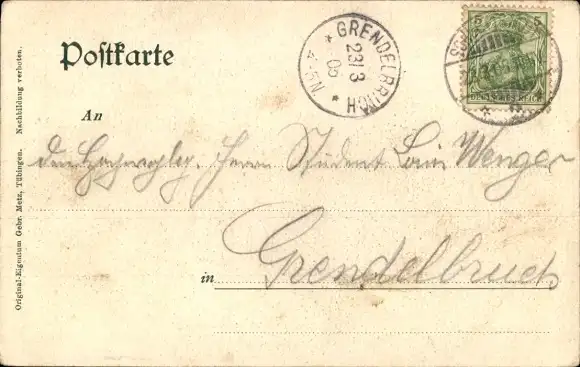 Postkarte
GRENDELBRUCH
23/3
05
4-5N
5 5
DEUTSCHES REICH
An
den Herrn Student Wenger
in Grendelbruch
Original-Eigentum Gebr. Metz, Tübingen. Nachbildung verboten.